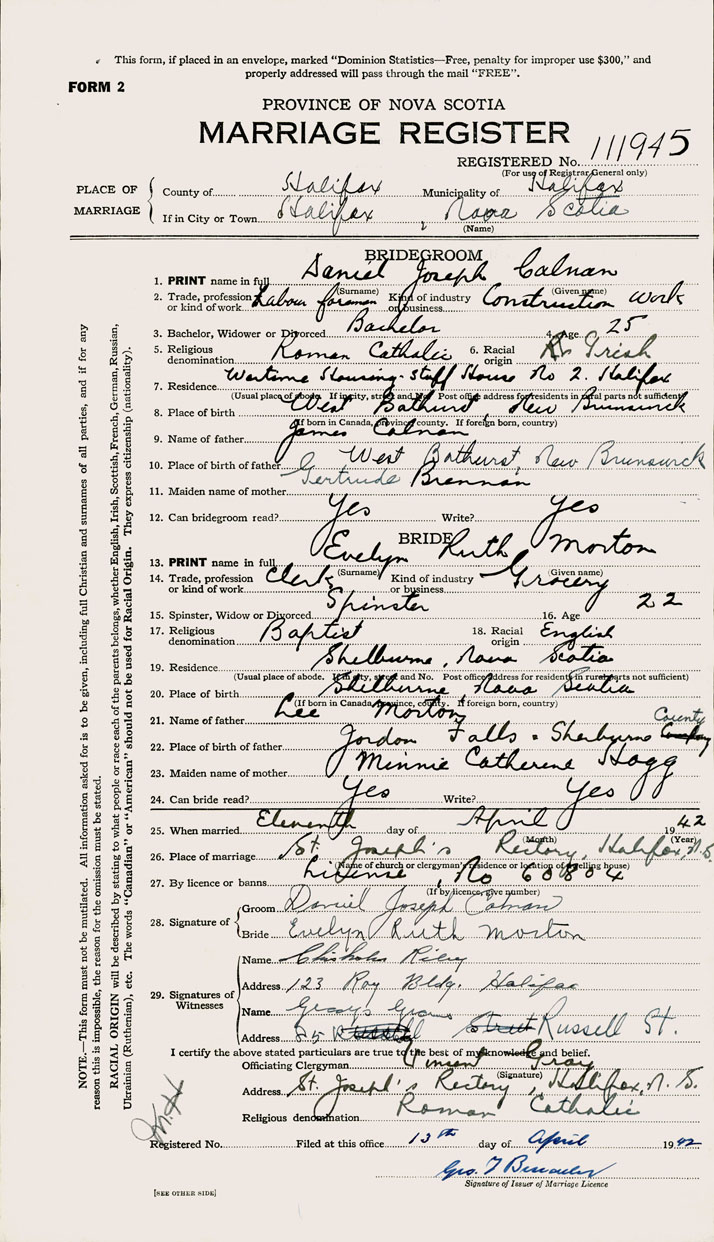 This form, if placed in an envelope, marked "Dominion Statistics—Free, penalty for improper use $300," and
properly addressed will pass through the mail "FREE".
FORM 2
PROVINCE OF NOVA SCOTIA
MARRIAGE REGISTER
REGISTERED No. 111945
(For use of Registrar General only)
PLACE OF MARRIAGE
County of Halifax Municipality of Halifax
If in City or Town Halifax, Nova Scotia
(Name)
BRIDEGROOM
1. PRINT name in full Daniel Joseph Calnan
(Surname) (Given name)
2. Trade, profession or kind of work Labour foreman Kind of industry or business Construction Work
3. Bachelor, Widower or Divorced Bachelor 4. Age 25
5. Religious denomination Roman Catholic 6. Racial origin Irish
7. Residence Wartime Housing-Staff House No 2. Halifax
(Usual place of abode. If in city, street and No. Post office address for residents in rural parts not sufficient)
8. Place of birth West Bathurst, New Brunswick
(If born in Canada, province, county. If foreign born, country)
9. Name of father James Calnan
10. Place of birth of father West Bathurst, New Brunswick
11. Maiden name of mother Gertrude Brennan
12. Can bridegroom read? Yes Write? Yes
BRIDE
13. PRINT name in full Evelyn Ruth Morton
(Surname) (Given name)
14. Trade, profession or kind of work Clerk Kind of industry or business Grocery
15. Spinster, Widow or Divorced Spinster 16. Age 22
17. Religious denomination Baptist 18. Racial origin English
19. Residence Shelburne, Nova Scotia
(Usual place of abode. If in city, street and No. Post office address for residents in rural parts not sufficient)
20. Place of birth Shelburne, Nova Scotia
(If born in Canada, province, county. If foreign born, country)
21. Name of father Lee Morton
22. Place of birth of father Jordon Falls - Sherburne County
23. Maiden name of mother Minnie Catherine Hogg
24. Can bride read? Yes Write? Yes
25. When married Eleventh day of April 1942
(Month) (Year)
26. Place of marriage St. Joseph's Rectory, Halifax, N.S.
(Name of church or clergyman's residence or location of dwelling house)
27. By licence or banns License, No 60804
(If by licence, give number)
28. Signature of
Groom Daniel Joseph Calnan
Bride Evelyn Ruth Morton
29. Signatures of Witnesses
Name Chisholm Riley
Address 123 Roy Bldg. Halifax
Name
Address 85 Russell St.
I certify the above stated particulars are true to the best of my knowledge and belief.
Officiating Clergyman Vincent Gray
(Signature)
Address St. Joseph's Rectory, Halifax, N.S.
Religious denomination Roman Catholic
Registered No. Filed at this office 13th day of April 1942
Geo. T
Signature of Issuer of Marriage Licence
[SEE OTHER SIDE]
NOTE.—This form must not be mutilated. All information asked for is to be given, including full Christian and surnames of all parties, and if for any
reason this is impossible, the reason for the omission must be stated.
RACIAL ORIGIN will be described by stating to what people or race each of the parents belongs, whether English, Irish, Scottish, French, German, Russian,
Ukrainian (Ruthenian), etc. The words "Canadian" or "American" should not be used for Racial Origin. They express citizenship (nationality).